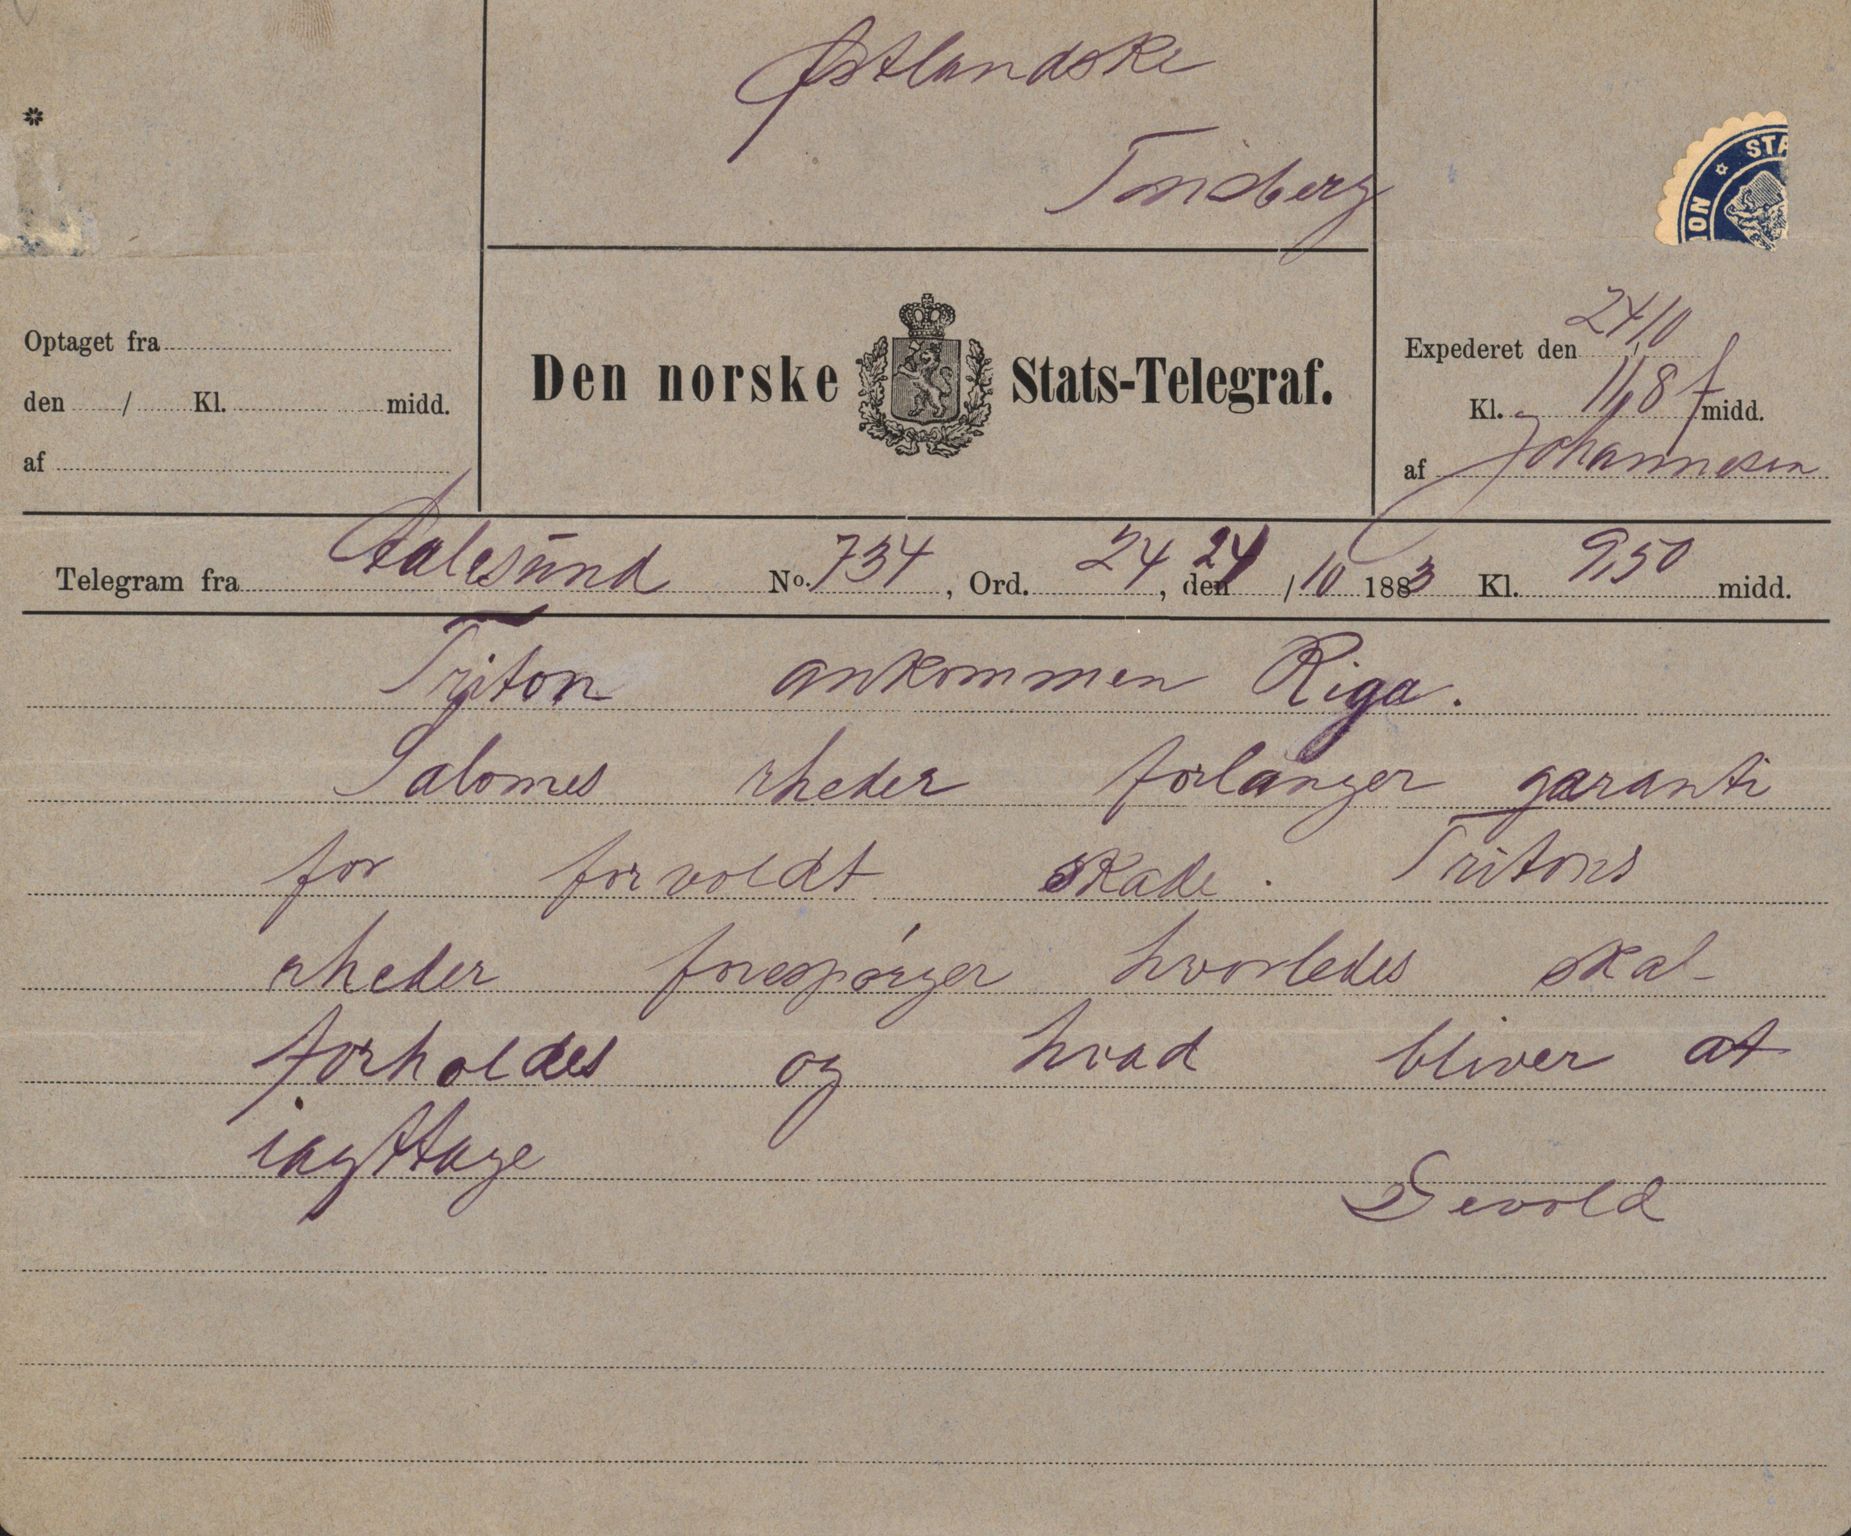 Østlandske
Tønsberg
STA
ION
Optaget fra
den / Kl. midd.
af
Den norske Stats-Telegraf.
Expederet den 24/10
Kl. 11,8 f midd.
af Johannesen
Telegram fra Aalesund No. 734, Ord. 24, den 24/10 1883 Kl. 9,50 midd.
Triton ankommen Riga.
Salomes rheder forlanger garanti
for forvoldt skade. Tritons
rheder forespørger hvorledes skal
forholdes og hvad bliver at
iagttage
Devold